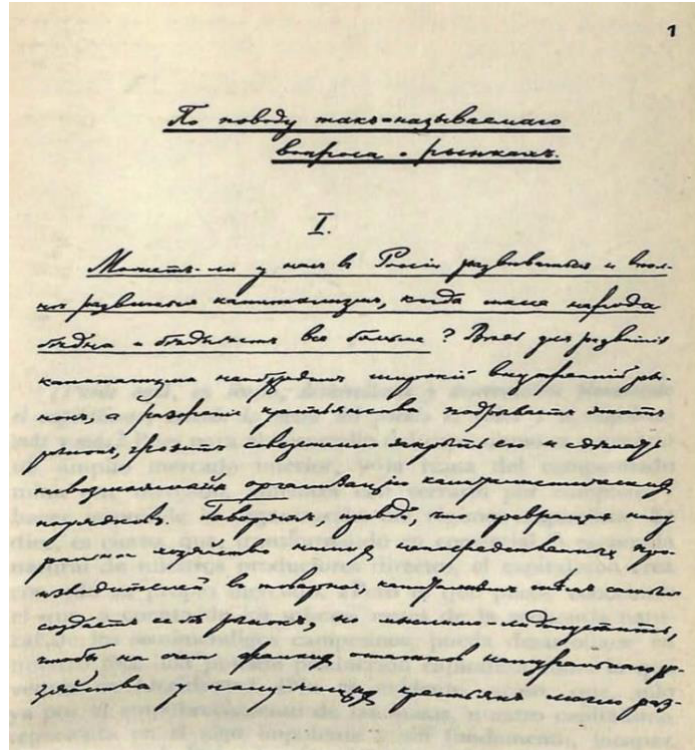 1
По поводу такъ-называемаго
вопроса о рынкахъ.
I.
Можетъ-ли у насъ в Россіи развиваться и впол-
нѣ развиться капитализм, когда масса народа
бѣдна и бѣднѣетъ все больше? Вѣдь для развитія
капитализма необходимъ широкій внутренній ры-
нокъ, а разореніе крестьянства подрываетъ этотъ
рынокъ, грозитъ совершенно закрыть его и сдѣлать
невозможной организацію капиталистических
порядковъ. Говорятъ, правда, что превращая нату-
ральное хозяйство наших непосредственных про-
изводителей въ товарное, капитализм тѣмъ самымъ
создаетъ себѣ рынокъ, но мыслимо ли допустить,
чтобы на счетъ жалких остатковъ натуральнаго хо-
зяйства у полунищих крестьянъ могло раз-